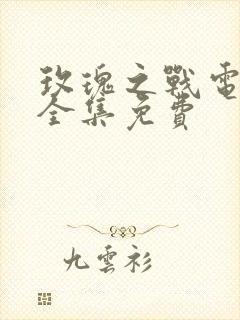 玫瑰之戰電
全集免費
九雲衫